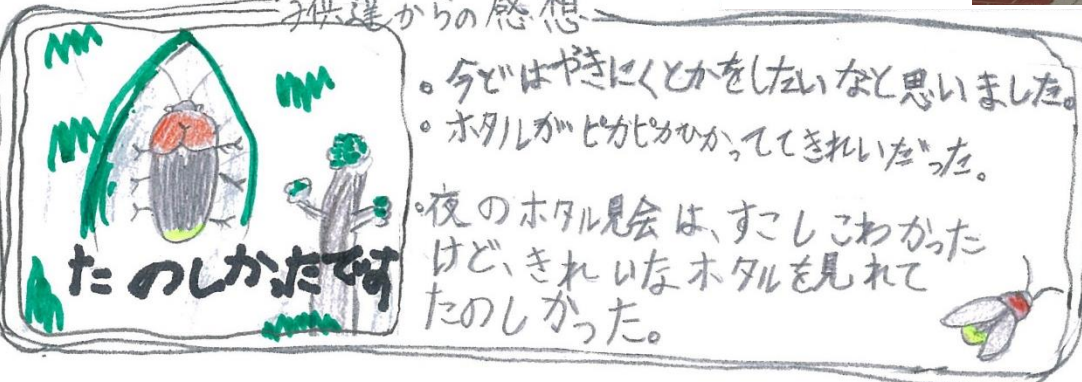 子供達からの感想
・今どはやきにくとかをしたいなと思いました。
・ホタルがピカピカひかっててきれいだった。
・夜のホタル見会は、すこしこわかった
けど、きれいなホタルを見れて
たのしかった。
たのしかったです